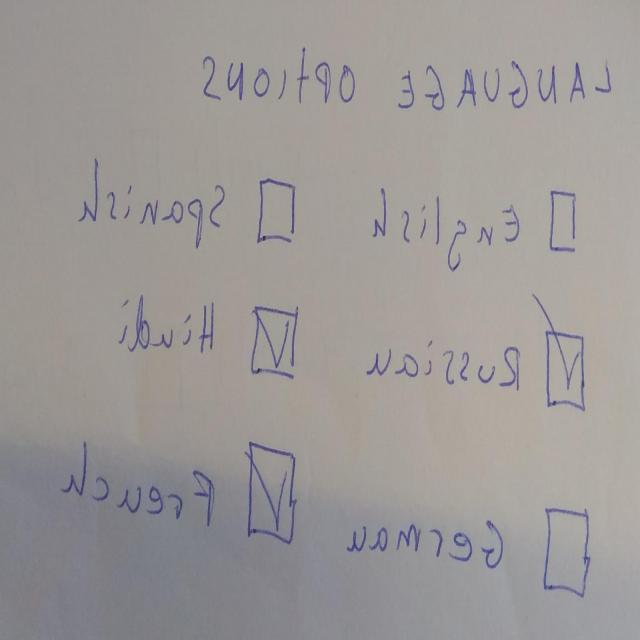 LANGUAGE OPtiONS
☐ English ☐ Spanish
☑ Russian ☑ Hindi
☐ German ☑ French